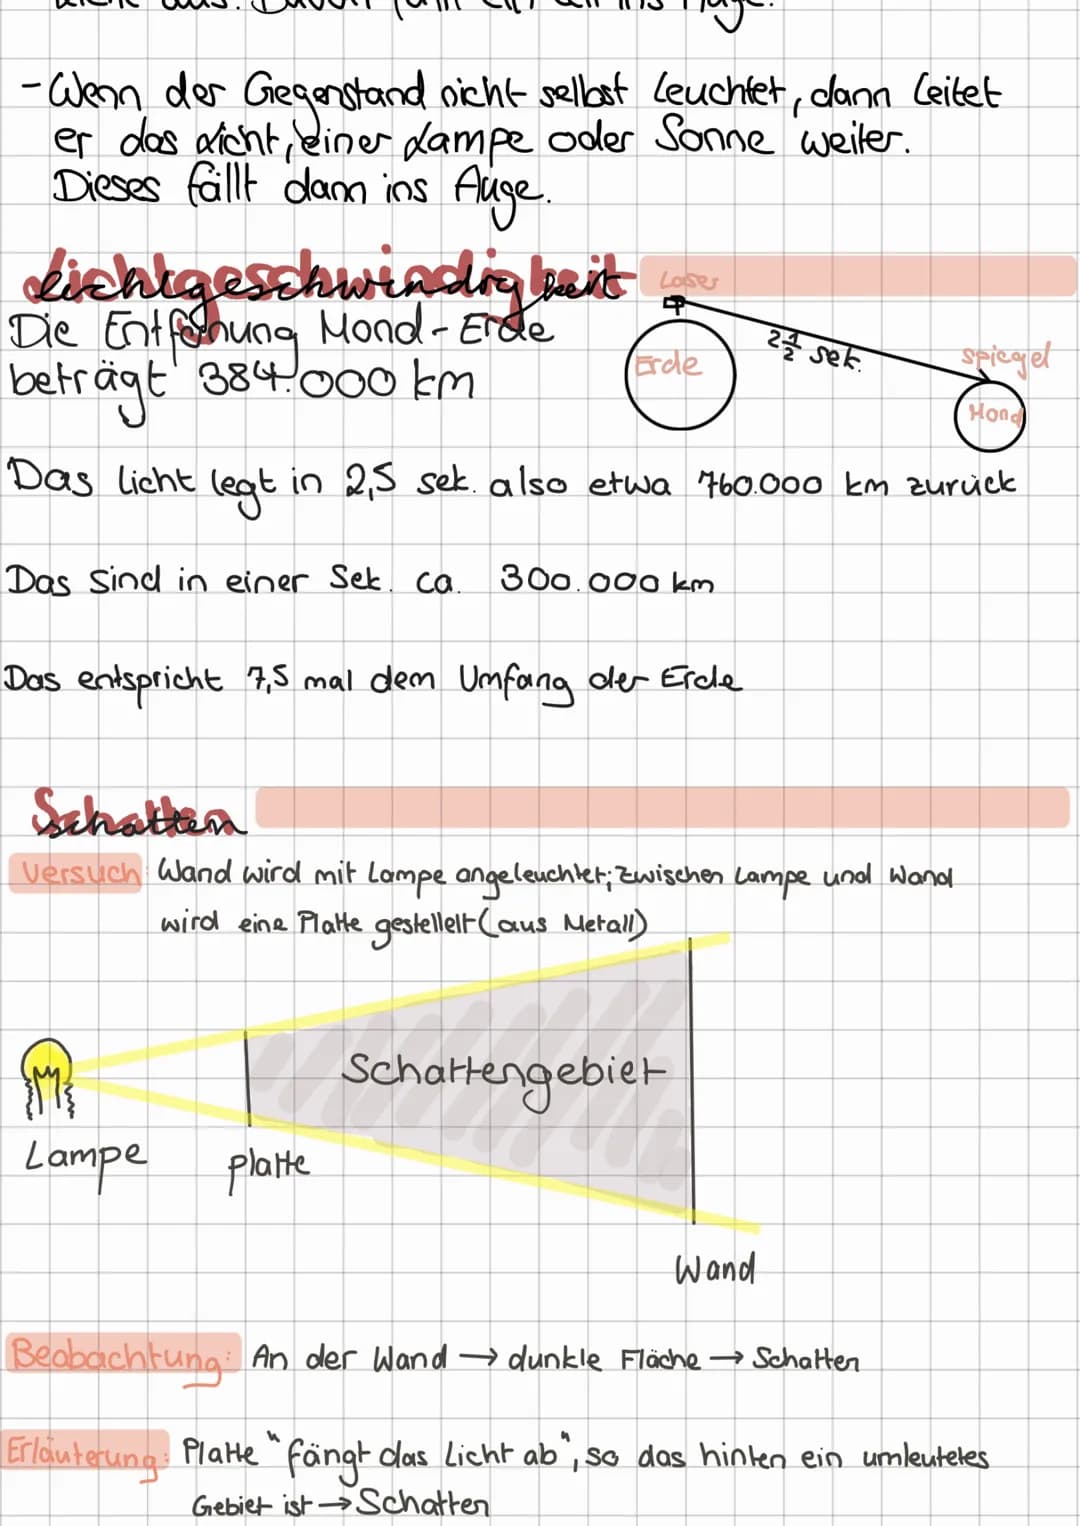 - Wenn der Gegenstand nicht selbst leuchtet, dann leitet
er das Licht, einer Lampe oder Sonne weiter.
Dieses fällt dann ins Auge.
Lichtgeschwindigkeit
Laser
Die Entfernung Mond-Erde
beträgt 384.000 km
Erde
2 1/2 sek.
Spiegel
Mond
Das Licht legt in 2,5 sek. also etwa 760.000 km zurück
Das sind in einer Sek. ca. 300.000 km
Das entspricht 7,5 mal dem Umfang der Erde
Schatten
Versuch: Wand wird mit Lampe angeleuchtet; Zwischen Lampe und Wand
wird eine Platte gestellelt (aus Metall)
Schattengebiet
Lampe
Platte
Wand
Beobachtung: An der Wand → dunkle Fläche → Schatten
Erläuterung: Platte "fängt das Licht ab", so das hinten ein umleutetes
Gebiet ist → Schatten